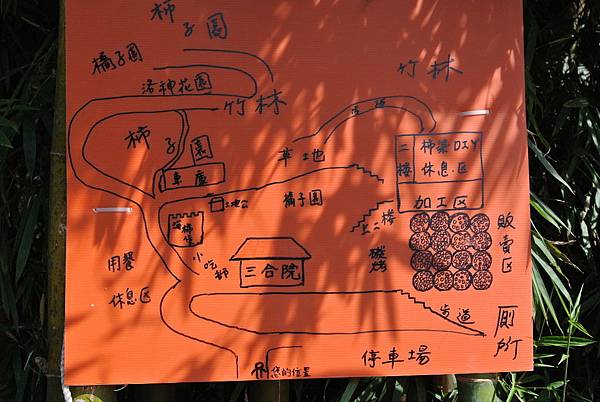 柿子園
橘子園
洛神花園
竹林
竹林
柿子園
車庫
草地
步道
二樓
柿染DIY
休息区
加工区
土地公
橘子園
上二樓
柿堡
小吃部
三合院
碳烤
販賣区
用餐
休息区
步道
厠所
停車場
您的位置